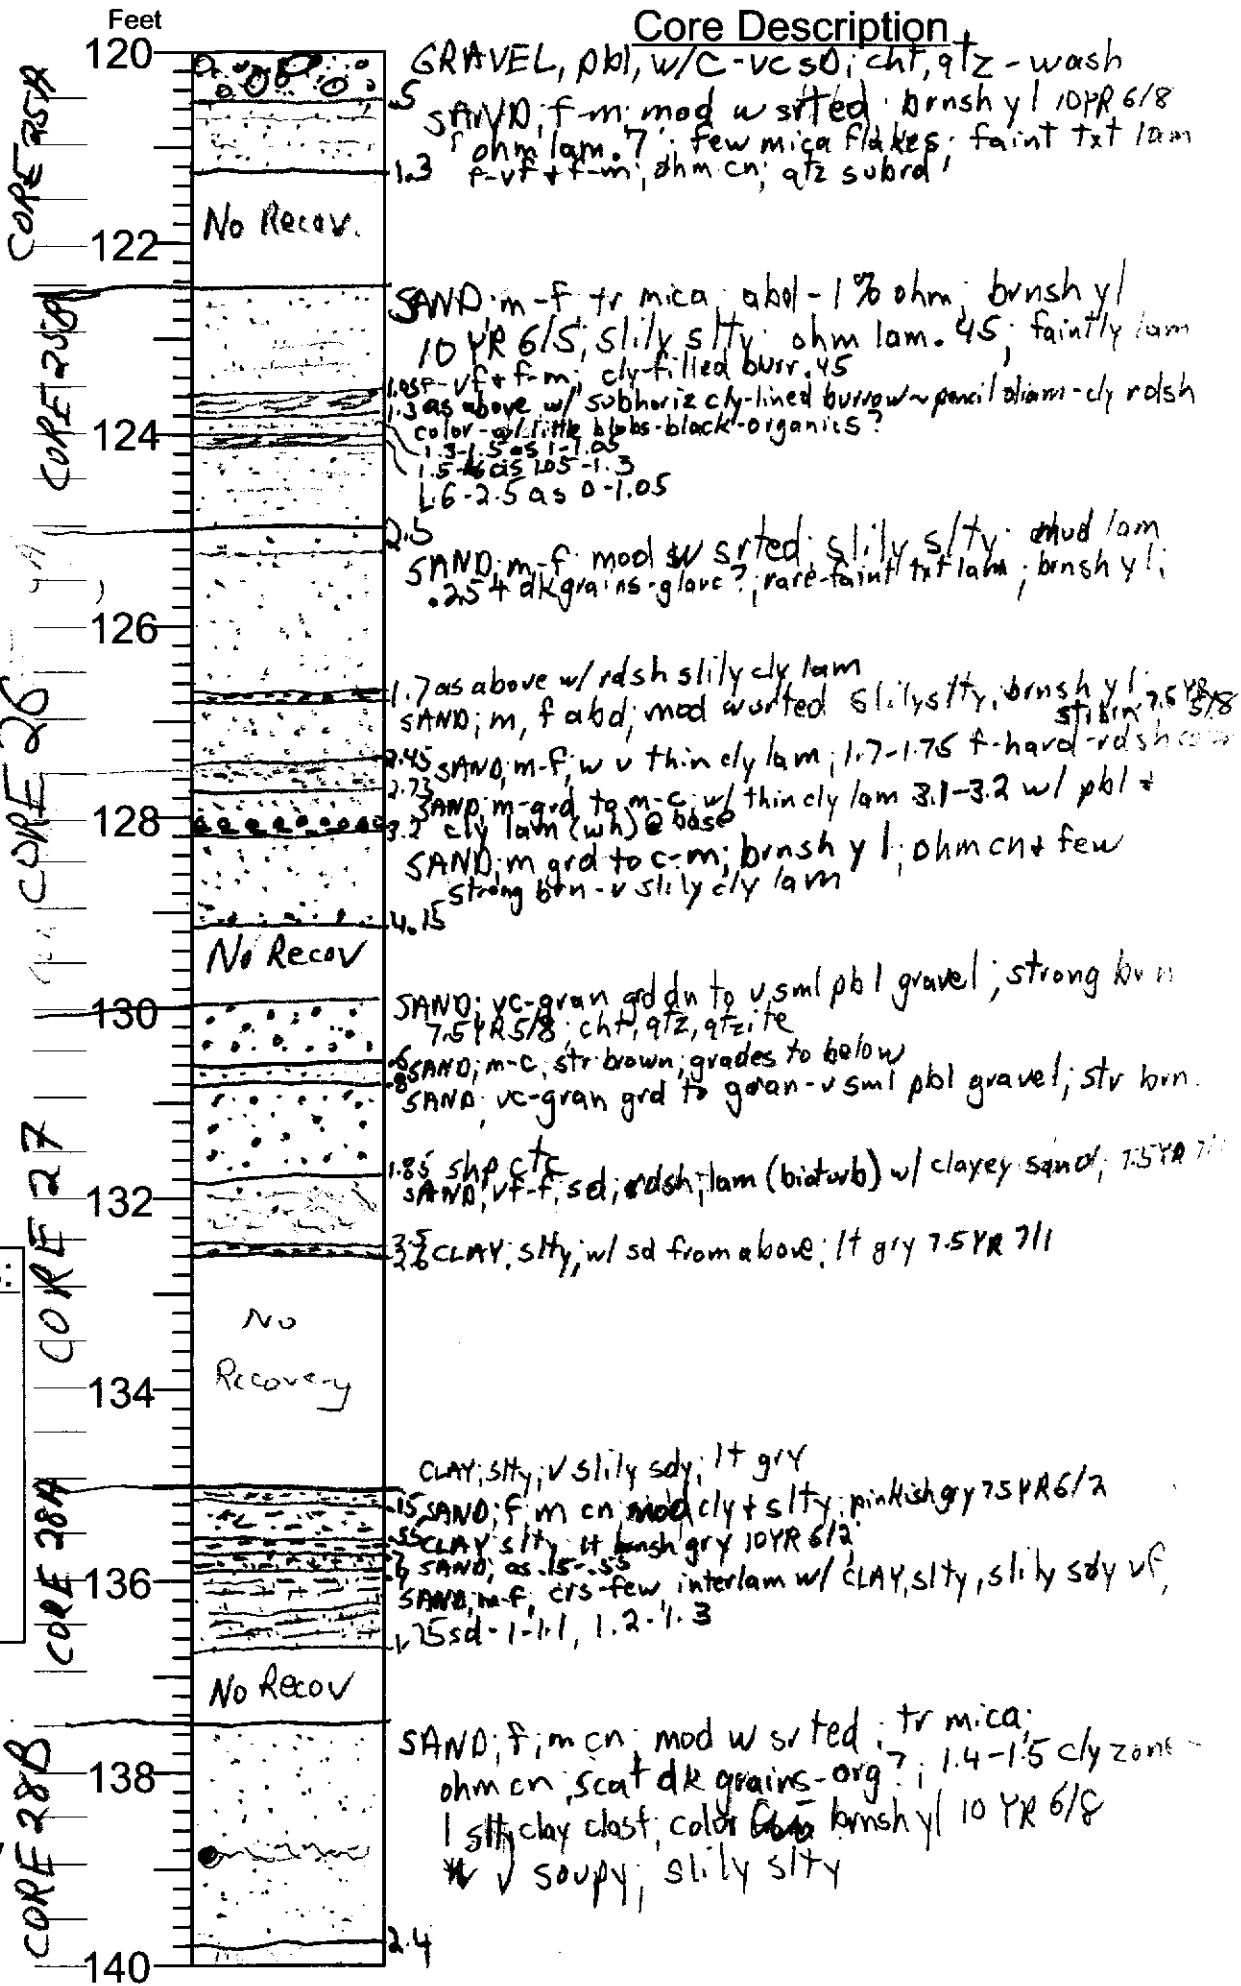 Feet
Core Description
120
GRAVEL, pbl, w/C-vc sD; cht, qtz - wash
.5
SAND; f-m; mod w srted; brnsh yl 10YR 6/8
ohm lam .7; few mica flakes; faint txt lam
1.3 f-vf + f-m; ohm cn; qtz subrd
CORE 25A
No Recov.
122
SAND; m-f tr mica; abd - 1% ohm; brnsh yl
10 YR 6/5; slily slty; ohm lam .45; faintly lam
f-vf + f-m; cly-filled burr .45
1.05
1.3 as above w/ subhoriz cly-lined burrow ~ pencil diam - cly rdsh
color - w/ little blobs - black - organics?
1.3-1.5 as 1-1.05
1.5-1.6 as 1.05-1.3
1.6-2.5 as 0-1.05
CORE 25B
124
2.5
SAND; m-f mod w srted; slily slty; mud lam
.25 + dk grains - glauc?; rare-faint txt lam; brnsh yl;
126
1.7 as above w/ rdsh slily cly lam
SAND; m, f abd; mod w srted slily slty; brnsh yl;
st brn 7.5 YR 5/8
2.45 SAND; m-f; w v thin cly lam; 1.7-1.75 f-hard-rdsh
2.75
SAND; m-grd to m-c; w/ thin cly lam 3.1-3.2 w/ pbl +
3.2 cly lam (wh) @ base
CORE 26
128
SAND; m grd to c-m; brnsh yl; ohm cn + few
strong brn - v slily cly lam
4.15
No Recov
130
SAND; vc-gran grd dn to v sml pbl gravel; strong brn
7.5YR 5/8; cht, qtz, qtzite
.6 SAND; m-c, str brown; grades to below
.8 SAND; vc-gran grd to gran-v sml pbl gravel; str brn.
1.85 shp ctc
SAND; vf-f, sd; rdsh; lam (bioturb) w/ clayey sand; 7.5YR 7/1
CORE 27
132
2.5
2.6 CLAY; slty; w/ sd from above; lt gry 7.5 YR 7/1
No
Recovery
134
CLAY; slty; v slily sdy; lt gry
.15 SAND; f; m cn; mod cly + slty; pinkish gry 7.5 YR 6/2
.55 CLAY slty lt brnsh gry 10YR 6/2
.7 SAND; as .15-.55
.9
CORE 28A
136
SAND; m-f, crs-few interlam w/ CLAY, slty, slily sdy vf,
1.75 sd - 1-1.1, 1.2-1.3
No Recov
SAND; f; m cn; mod w srted; tr mica;
CORE 28B
138
ohm cn, scat dk grains - org?; 1.4-1.5 cly zone -
1 slty clay clast; color brnsh yl 10 YR 6/8
v soupy; slily slty
2.4
140